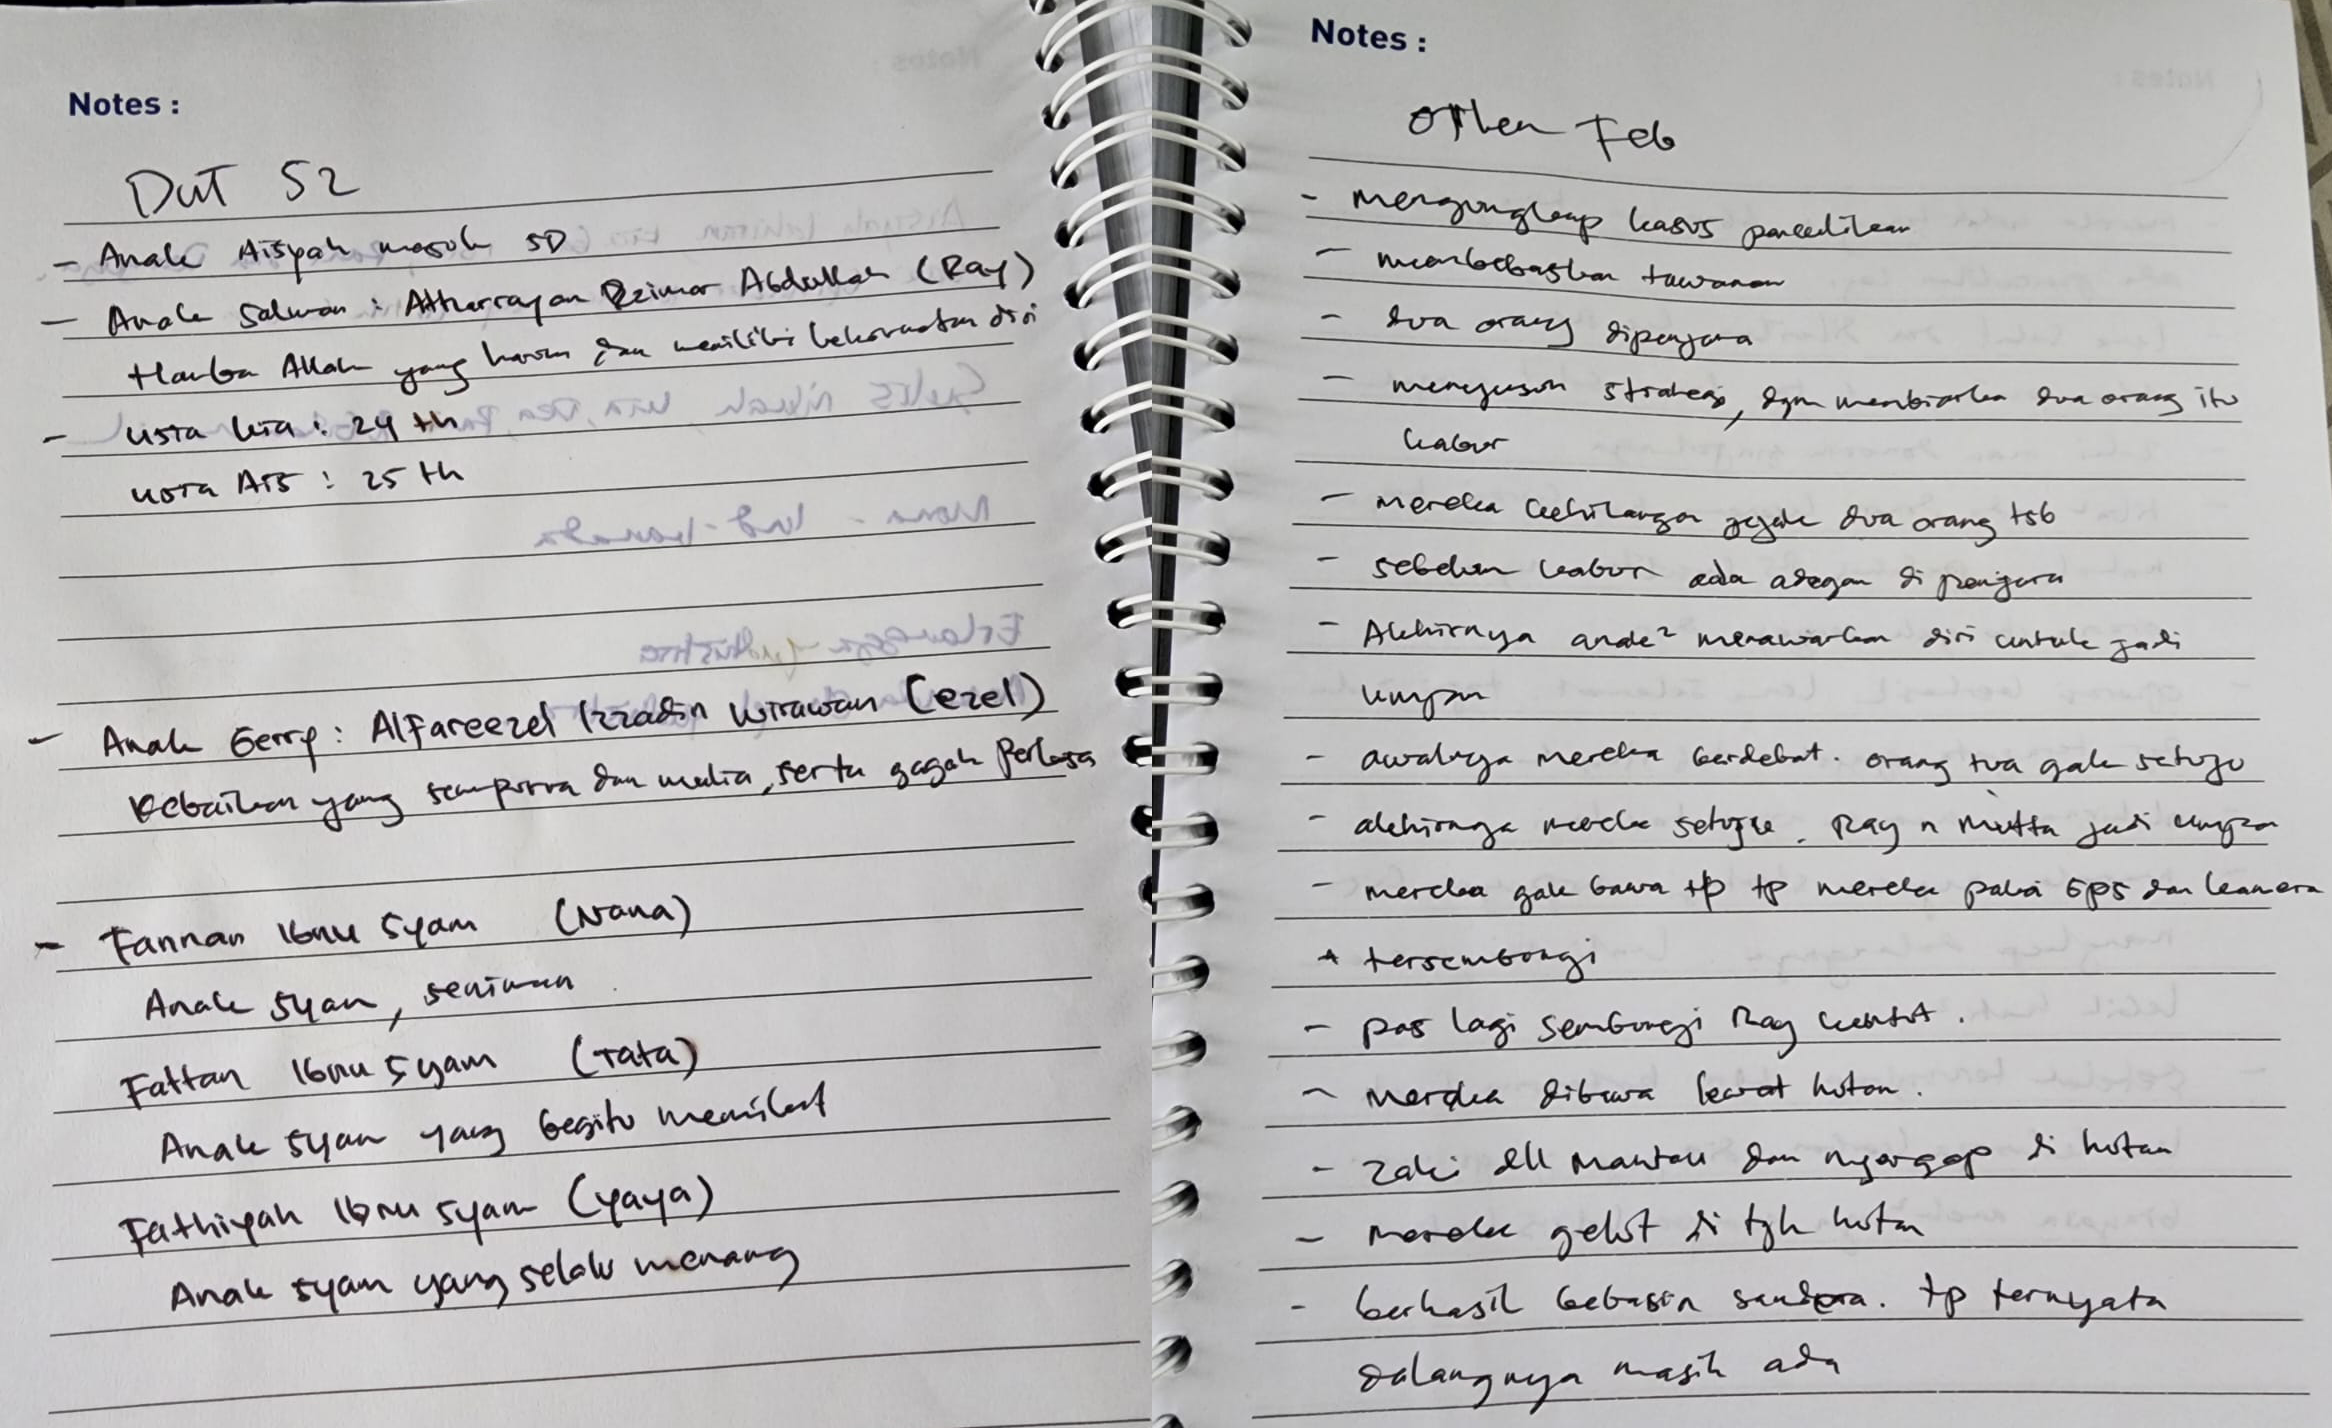 Notes :
DUT S2
- Anak Aisyah masuk SD
- Anak Salman : Attharrayan Abdullah (Ray)
Hamba Allah yang harum dan memiliki kehormatan diri
- usia kia : 24 th
usia Ais : 25 th
- Anak Gerry : Alfareezel Izzadin Wirawan (Ezel)
Kebaikan yang sempurna dan mulia, serta gagah perkasa
- Fannan Ibnu Syam (Nana)
Anak Syam, seniman
Fattan Ibnu Syam (Tata)
Anak Syam yang begitu memikat
Fathiyah Ibnu Syam (Yaya)
Anak Syam yang selalu menang
Notes :
Feb
- Mengungkap kasus penculikan
- membebaskan tawanan
- dua orang dipenjara
- menyusun strategi, dgn membiarkan dua orang itu
kabur
- Mereka kehilangan jejak dua orang tsb
- sebelum kabur ada adegan di penjara
- Akhirnya anak² menawarkan diri untuk jadi
umpan
- awalnya mereka berdebat. orang tua gak setuju
- akhirnya mereka setuju. Ray n jadi umpan
- mereka gak bawa hp tp mereka pakai GPS dan kamera
tersembunyi
- pas lagi sembunyi Ray kentut.
- Mereka dibawa lewat hutan.
- Zaki dll mantau dan nyergap di hutan
- Mereka gelut di tgh hutan
- berhasil bebasin sandera. tp ternyata
dalangnya masih ada